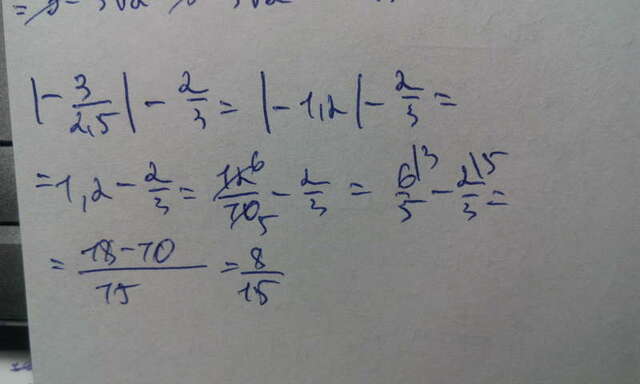 |-3/2,5| - 2/3 = |-1,2| - 2/3 =
= 1,2 - 2/3 = 12/10 - 2/3 = 6/5 - 2/3 =
= 18-10/15 = 8/15